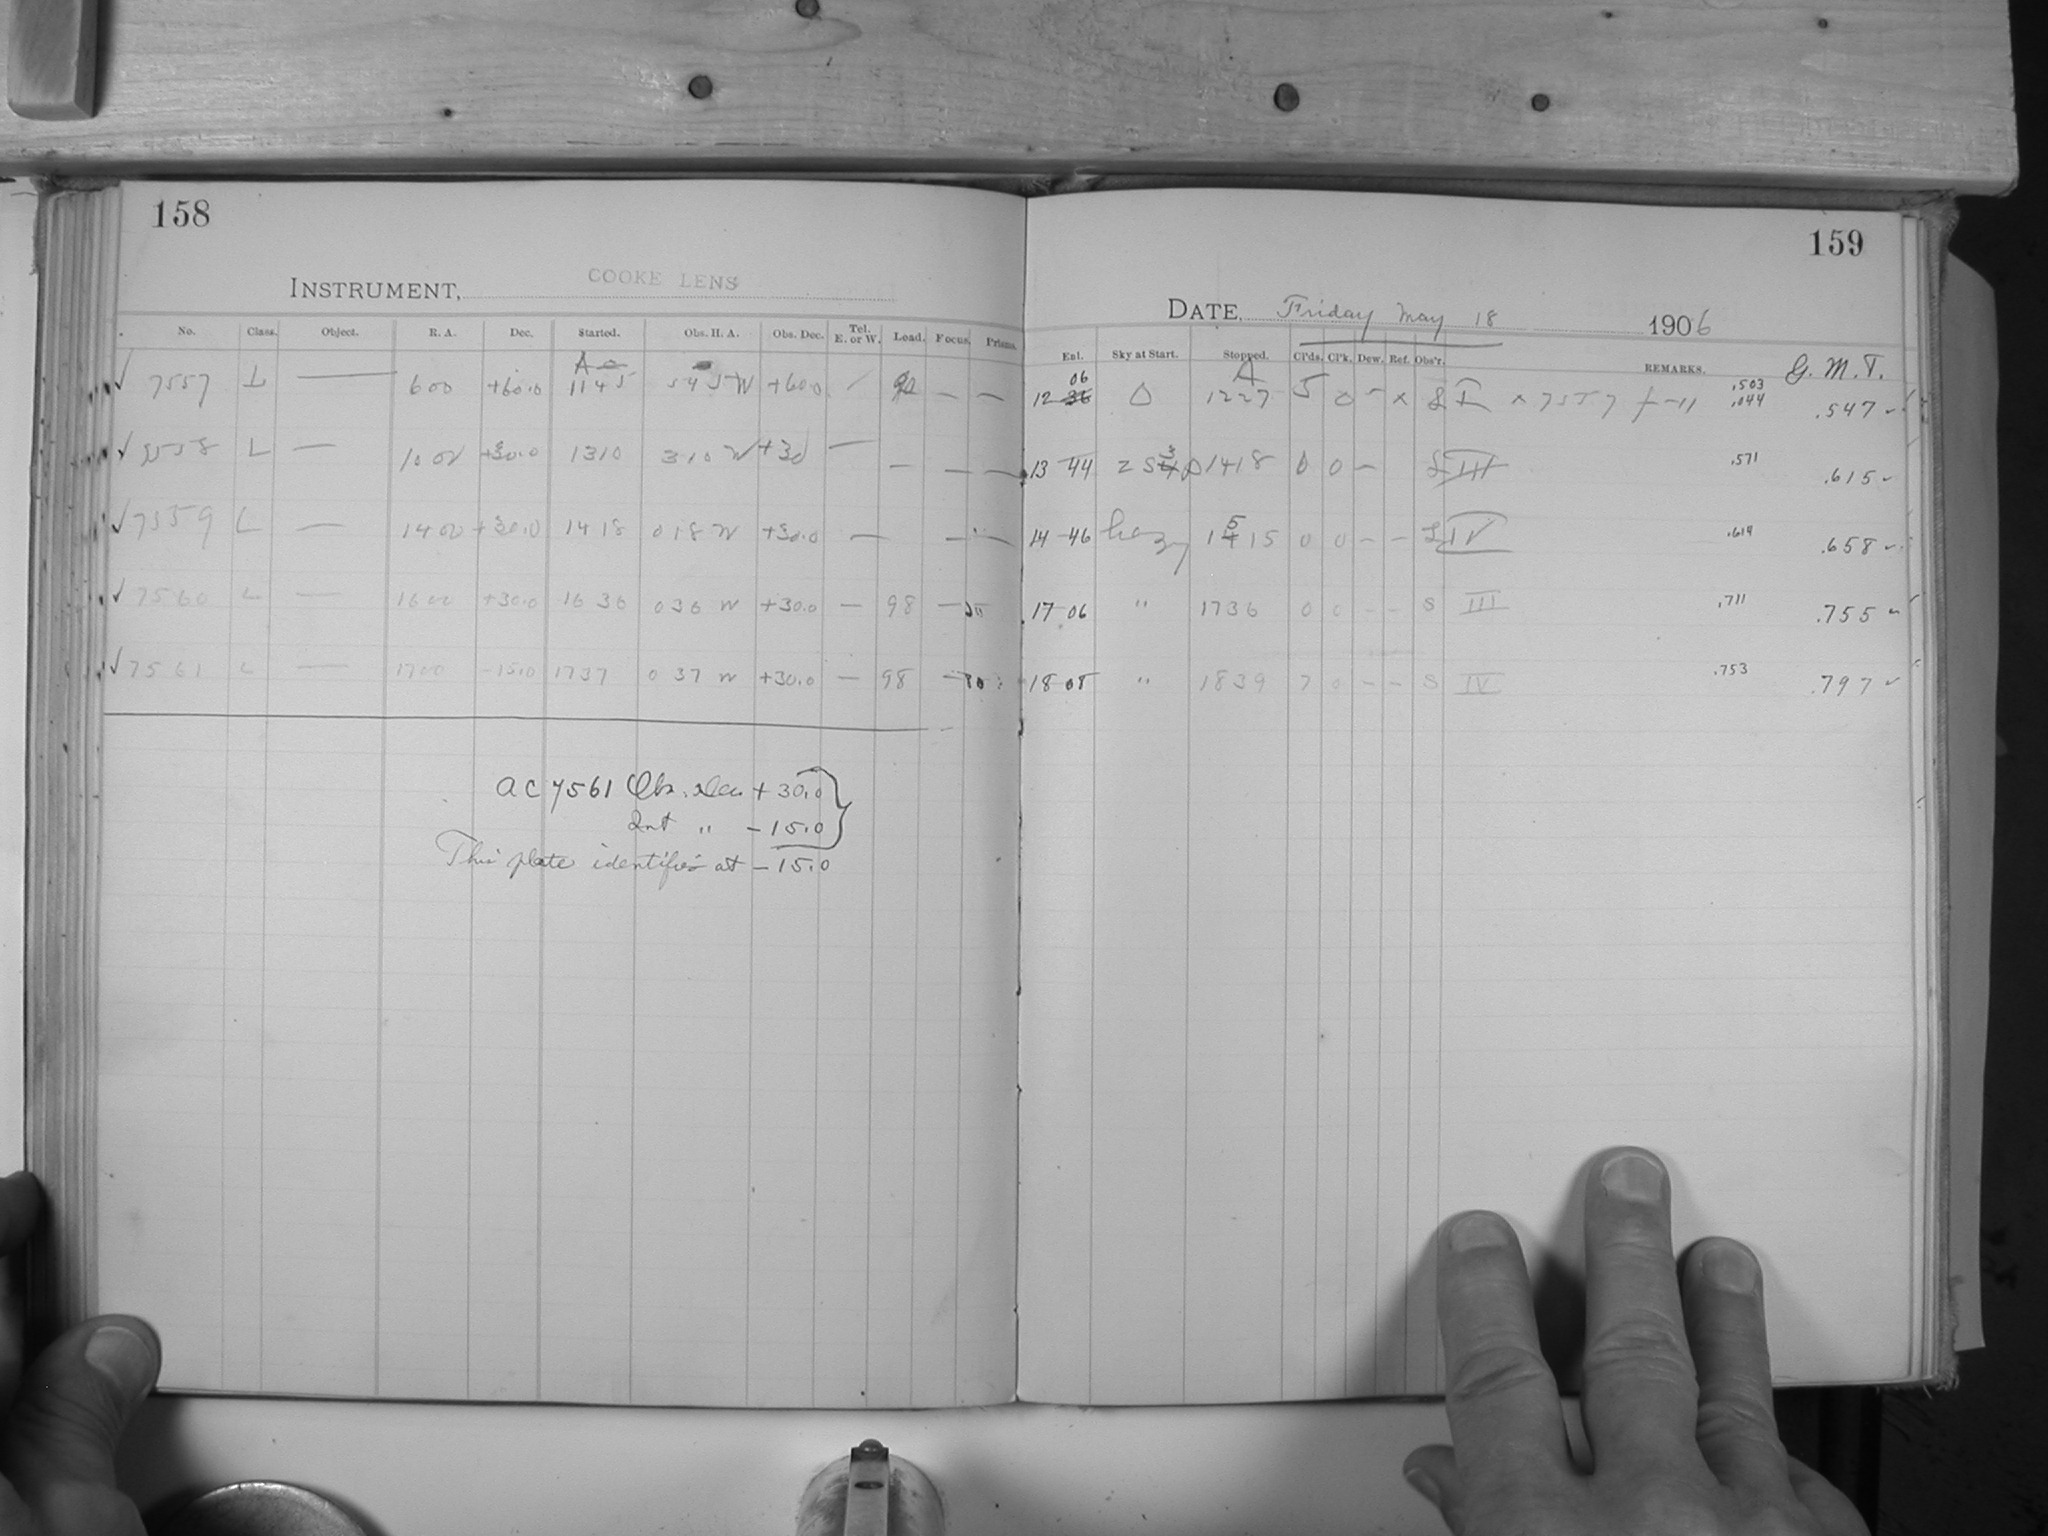 158
INSTRUMENT, COOKE LENS
No. Class. Object. R. A. Dec. Started. Obs. H. A. Obs. Dec. Tel. E. or W. Load. Focus. Prisms.
✓ 7557 L — 6 00 +60.0 1145 5 45 W +60.0
✓ 7558 L — 10 00 +30.0 1310 3 10 W +30 — — — —
✓ 7559 L — 14 00 +30.0 1418 0 18 W +30.0 — — —
✓ 7560 L — 16 00 +30.0 1636 0 36 W +30.0 — 98 —
✓ 7561 L — 17 00 -15.0 1737 0 37 W +30.0 — 98 —
AC 7561 Obs. Dec +30.0
Int " -15.0
This plate identifies at -15.0
159
DATE, Friday May 18 1906
Ext. Sky at Start. Stopped. Cl'ds. Cl'k. Dew. Ref. Obs'r. REMARKS. G. M. T.
12 06 1227 5 0 - × I × 7557 .503 .044 .547 ✓
13 44 1418 0 0 - III .571 .615 ✓
14 46 hazy 1515 0 0 - - IV .614 .658 ✓
17 06 " 1736 0 0 - - S III .711 .755 ✓
18 08 " 1839 7 0 - - S IV .753 .797 ✓